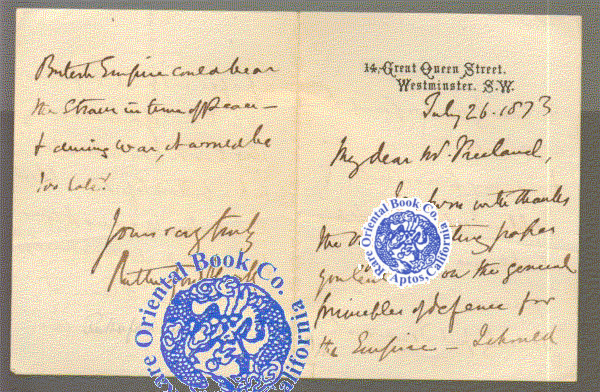 14, Great Queen Street.
Westminster. S.W.
July 26. 1873
My dear Mr. Freeland,
with thanks
the papers
you on the general
principles of defence for
the Empire — I should
British Empire could bear
the Strain in time of Peace —
& during war, it would be
too late!
Yours very truly
Rare Oriental Book Co.
Aptos, California
Rare Oriental Book Co.
California